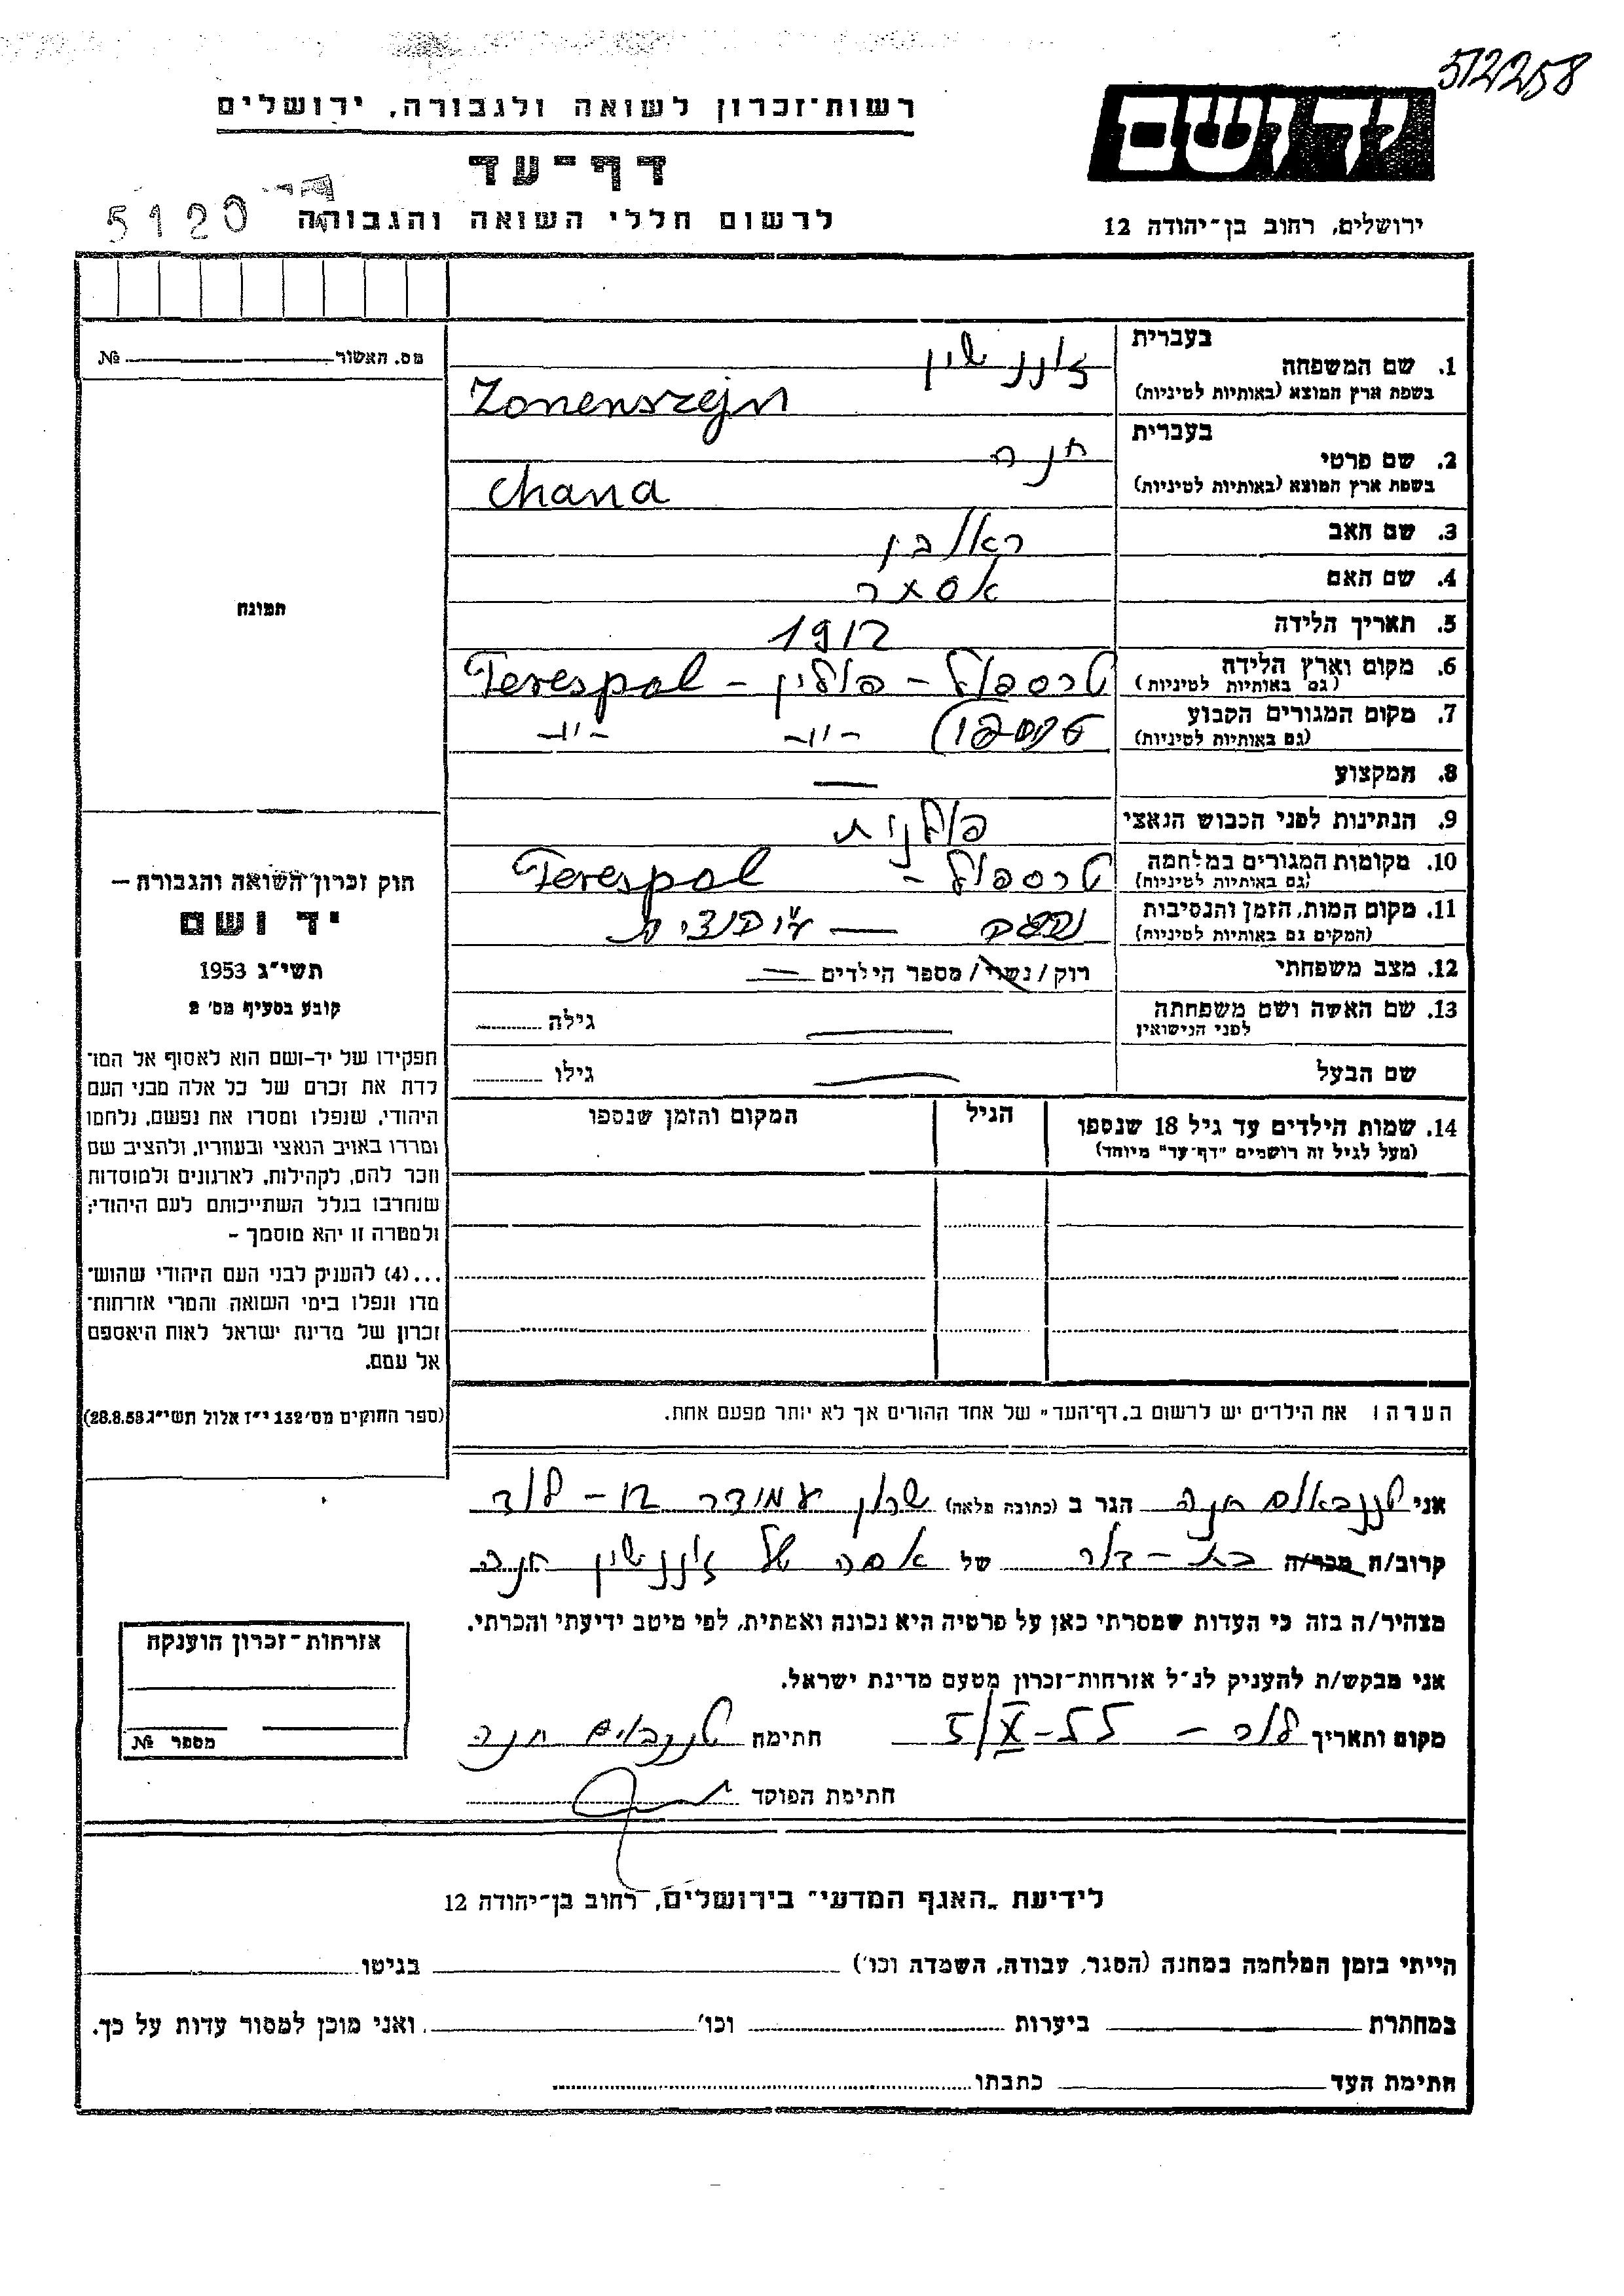 512258
יד ושם
רשות־זכרון לשואה ולגבורה, ירושלים
דף־עד
לרשום חללי השואה והגבורה
5120
ירושלים, רחוב בן־יהודה 12
מס. האשור № 
1. שם המשפחה בעברית זוננשין
בשפת ארץ המוצא (באותיות לטיניות) Zonenszejn
2. שם פרטי בעברית חנה
בשפת ארץ המוצא (באותיות לטיניות) Chana
3. שם האב ראובן
4. שם האם אסתר
5. תאריך הלידה 1912
6. מקום וארץ הלידה טרספול - פולין - Terespol
(גם באותיות לטיניות)
7. מקום המגורים הקבוע טרספול -"- -"-
(גם באותיות לטיניות)
8. המקצוע —
9. הנתינות לפני הכבוש הנאצי פולנית
10. מקומות המגורים במלחמה טרספול - Terespol
(גם באותיות לטיניות)
11. מקום המות, הזמן והנסיבות
(המקים גם באותיות לטיניות)
12. מצב משפחתי רוק/נשוי/מספר הילדים —
13. שם האשה ושם משפחתה — גילה
לפני הנישואין
שם הבעל — גילו
14. שמות הילדים עד גיל 18 שנספו הגיל המקום והזמן שנספו
(מעל לגיל זה רושמים "דף־עד" מיוחד)
הערה: את הילדים יש לרשום ב„דף־העד" של אחד ההורים אך לא יותר מפעם אחת.
תמונה
חוק זכרון השואה והגבורה —
יד ושם
תשי"ג 1953
קובע בסעיף מס' 2
תפקידו של יד-ושם הוא לאסוף אל המו־
לדת את זכרם של כל אלה מבני העם
היהודי, שנפלו ומסרו את נפשם, נלחמו
ומרדו באויב הנאצי ובעוזריו, ולהציב שם
וזכר להם, לקהילות, לארגונים ולמוסדות
שנחרבו בגלל השתייכותם לעם היהודי;
ולמטרה זו יהא מוסמך -
...(4) להעניק לבני העם היהודי שהוש־
מדו ונפלו בימי השואה והמרי אזרחות־
זכרון של מדינת ישראל לאות היאספם
אל עמם.
(ספר החוקים מס' 132 י"ז אלול תשי"ג 28.8.53)
אני טננבאום חנה הגר ב (כתובה מלאה) שכון עמידר - לוד
קרוב/ה מכר/ה בת-דוד של זוננשין חנה
מצהיר/ה בזה כי העדות שמסרתי כאן על פרטיה היא נכונה ואמתית, לפי מיטב ידיעתי והכרתי.
אני מבקש/ת להעניק לנ"ל אזרחות־זכרון מטעם מדינת ישראל.
מקום ותאריך לוד - 5/X-55 חתימה טננבוים חנה
חתימת הפוקד
אזרחות־זכרון הוענקה
מספר №
לידיעת „האגף המדעי" בירושלים, רחוב בן־יהודה 12
הייתי בזמן המלחמה במחנה (הסגר, עבודה, השמדה וכו') בגיטו
במחתרת ביערות וכו' ואני מוכן למסור עדות על כך.
חתימת העד כתבתו